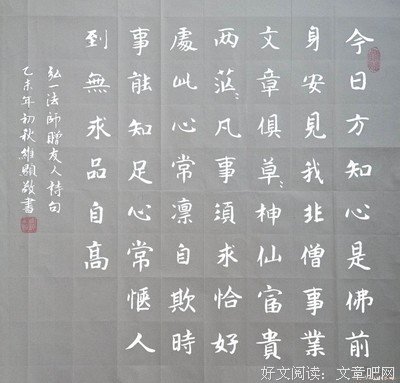 今日方知心是佛前
身安見我非僧事業
文章俱草〻神仙富貴
两茫〻凡事須求恰好
處此心常凛自欺時
事能知足心常愜人
到無求品自高
弘一法師贈友人詩句
乙未年初秋維顯敬書
好文阅读：文章吧网